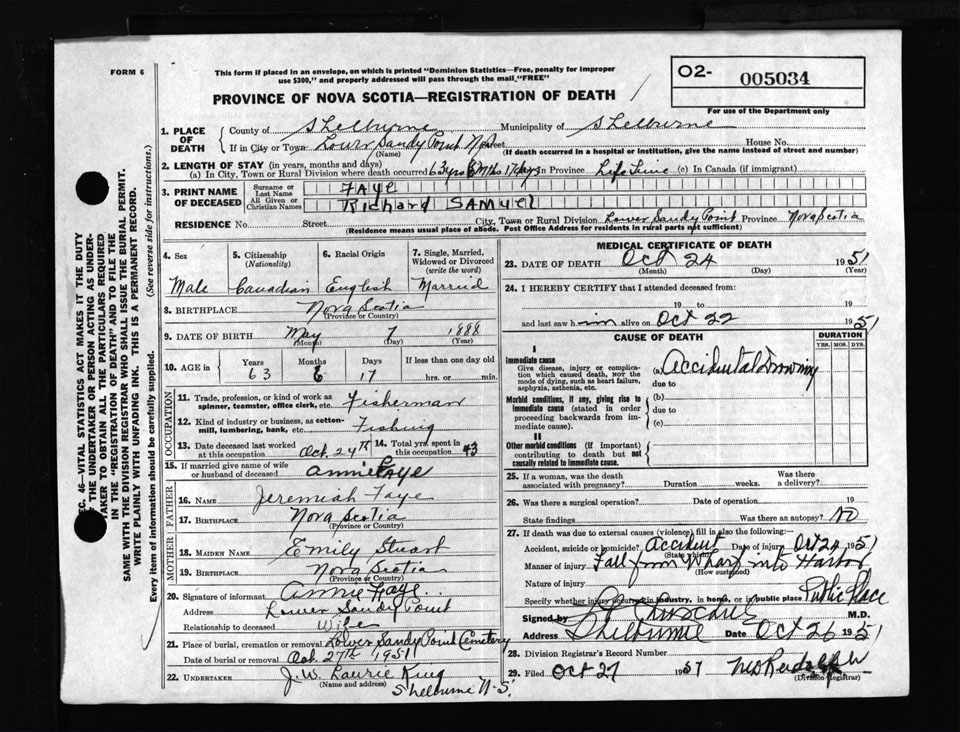 FORM 6
This form if placed in an envelope, on which is printed "Dominion Statistics—Free, penalty for improper
use $300," and properly addressed will pass through the mail "FREE"
02- 005034
PROVINCE OF NOVA SCOTIA—REGISTRATION OF DEATH
For use of the Department only
1. PLACE OF DEATH { County of Shelburne Municipality of Shelburne
If in City or Town Lower Sandy Point N.S. Street House No.
(Name) (If death occurred in a hospital or institution, give the name instead of street and number)
2. LENGTH OF STAY (in years, months and days)
(a) In City, Town or Rural Division where death occurred 63 yrs 6 Mths 17 days In Province Life Time (c) In Canada (if immigrant)
3. PRINT NAME OF DECEASED { Surname or Last Name FAYE
All Given or Christian Names Richard SAMUEL
RESIDENCE No. Street City, Town or Rural Division Lower Sandy Point Province Nova Scotia
(Residence means usual place of abode. Post Office Address for residents in rural parts not sufficient)
4. Sex Male
5. Citizenship (Nationality) Canadian
6. Racial Origin English
7. Single, Married, Widowed or Divorced (write the word) Married
8. BIRTHPLACE Nova Scotia
(Province or Country)
9. DATE OF BIRTH May 7 1888
(Month) (Day) (Year)
10. AGE in { Years 63 Months 6 Days 17 If less than one day old
hrs. or min.
OCCUPATION
11. Trade, profession, or kind of work as spinner, teamster, office clerk, etc. Fisherman
12. Kind of industry or business, as cotton-mill, lumbering, bank, etc. Fishing
13. Date deceased last worked at this occupation Oct. 24th 14. Total yrs. spent in this occupation 43
15. If married give name of wife or husband of deceased Annie Faye
FATHER
16. NAME Jeremiah Faye
17. BIRTHPLACE Nova Scotia
(Province or Country)
MOTHER
18. MAIDEN NAME Emily Stuart
19. BIRTHPLACE Nova Scotia
(Province or Country)
20. Signature of informant Annie Faye
Address Lower Sandy Point
Relationship to deceased Wife
21. Place of burial, cremation or removal Lower Sandy Point Cemetery
Date of burial or removal Oct. 27th 1951
22. UNDERTAKER J. W. Laurie King
(Name and address) Shelburne N.S.
MEDICAL CERTIFICATE OF DEATH
23. DATE OF DEATH Oct 24 1951
(Month) (Day) (Year)
24. I HEREBY CERTIFY that I attended deceased from:
19 to 19
and last saw him alive on Oct 22 1951
CAUSE OF DEATH DURATION
YRS. MOS. DYS.
I
Immediate cause
Give disease, injury or complication which caused death, NOT the mode of dying, such as heart failure, asphyxia, asthenia, etc.
(a) Accidental Drowning
due to
Morbid conditions, if any, giving rise to immediate cause (stated in order proceeding backwards from immediate cause).
(b)
due to
(c)
II
Other morbid conditions (If important) contributing to death but not causally related to immediate cause.
25. If a woman, was the death associated with pregnancy? Duration weeks. Was there a delivery?
26. Was there a surgical operation? Date of operation 19
State findings Was there an autopsy? NO
27. If death was due to external causes (violence) fill in also the following:
Accident, suicide or homicide? Accident Date of injury Oct 24 1951
(State which)
Manner of injury Fall from Wharf into Harbor
(How sustained)
Nature of injury
Specify whether injury occurred in industry, in home, or in public place Public Place
Signed by M.D.
Address Shelburne Date Oct 26 1951
28. Division Registrar's Record Number
29. Filed Oct 27 1951
(Division Registrar)
SEC. 46—VITAL STATISTICS ACT MAKES IT THE DUTY
OF THE UNDERTAKER OR PERSON ACTING AS UNDERTAKER TO OBTAIN ALL THE PARTICULARS REQUIRED
IN THE "REGISTRATION OF DEATH" AND TO FILE THE
SAME WITH THE DIVISION REGISTRAR WHO SHALL ISSUE THE BURIAL PERMIT.
WRITE PLAINLY WITH UNFADING INK. THIS IS A PERMANENT RECORD.
Every item of information should be carefully supplied. (See reverse side for instructions.)